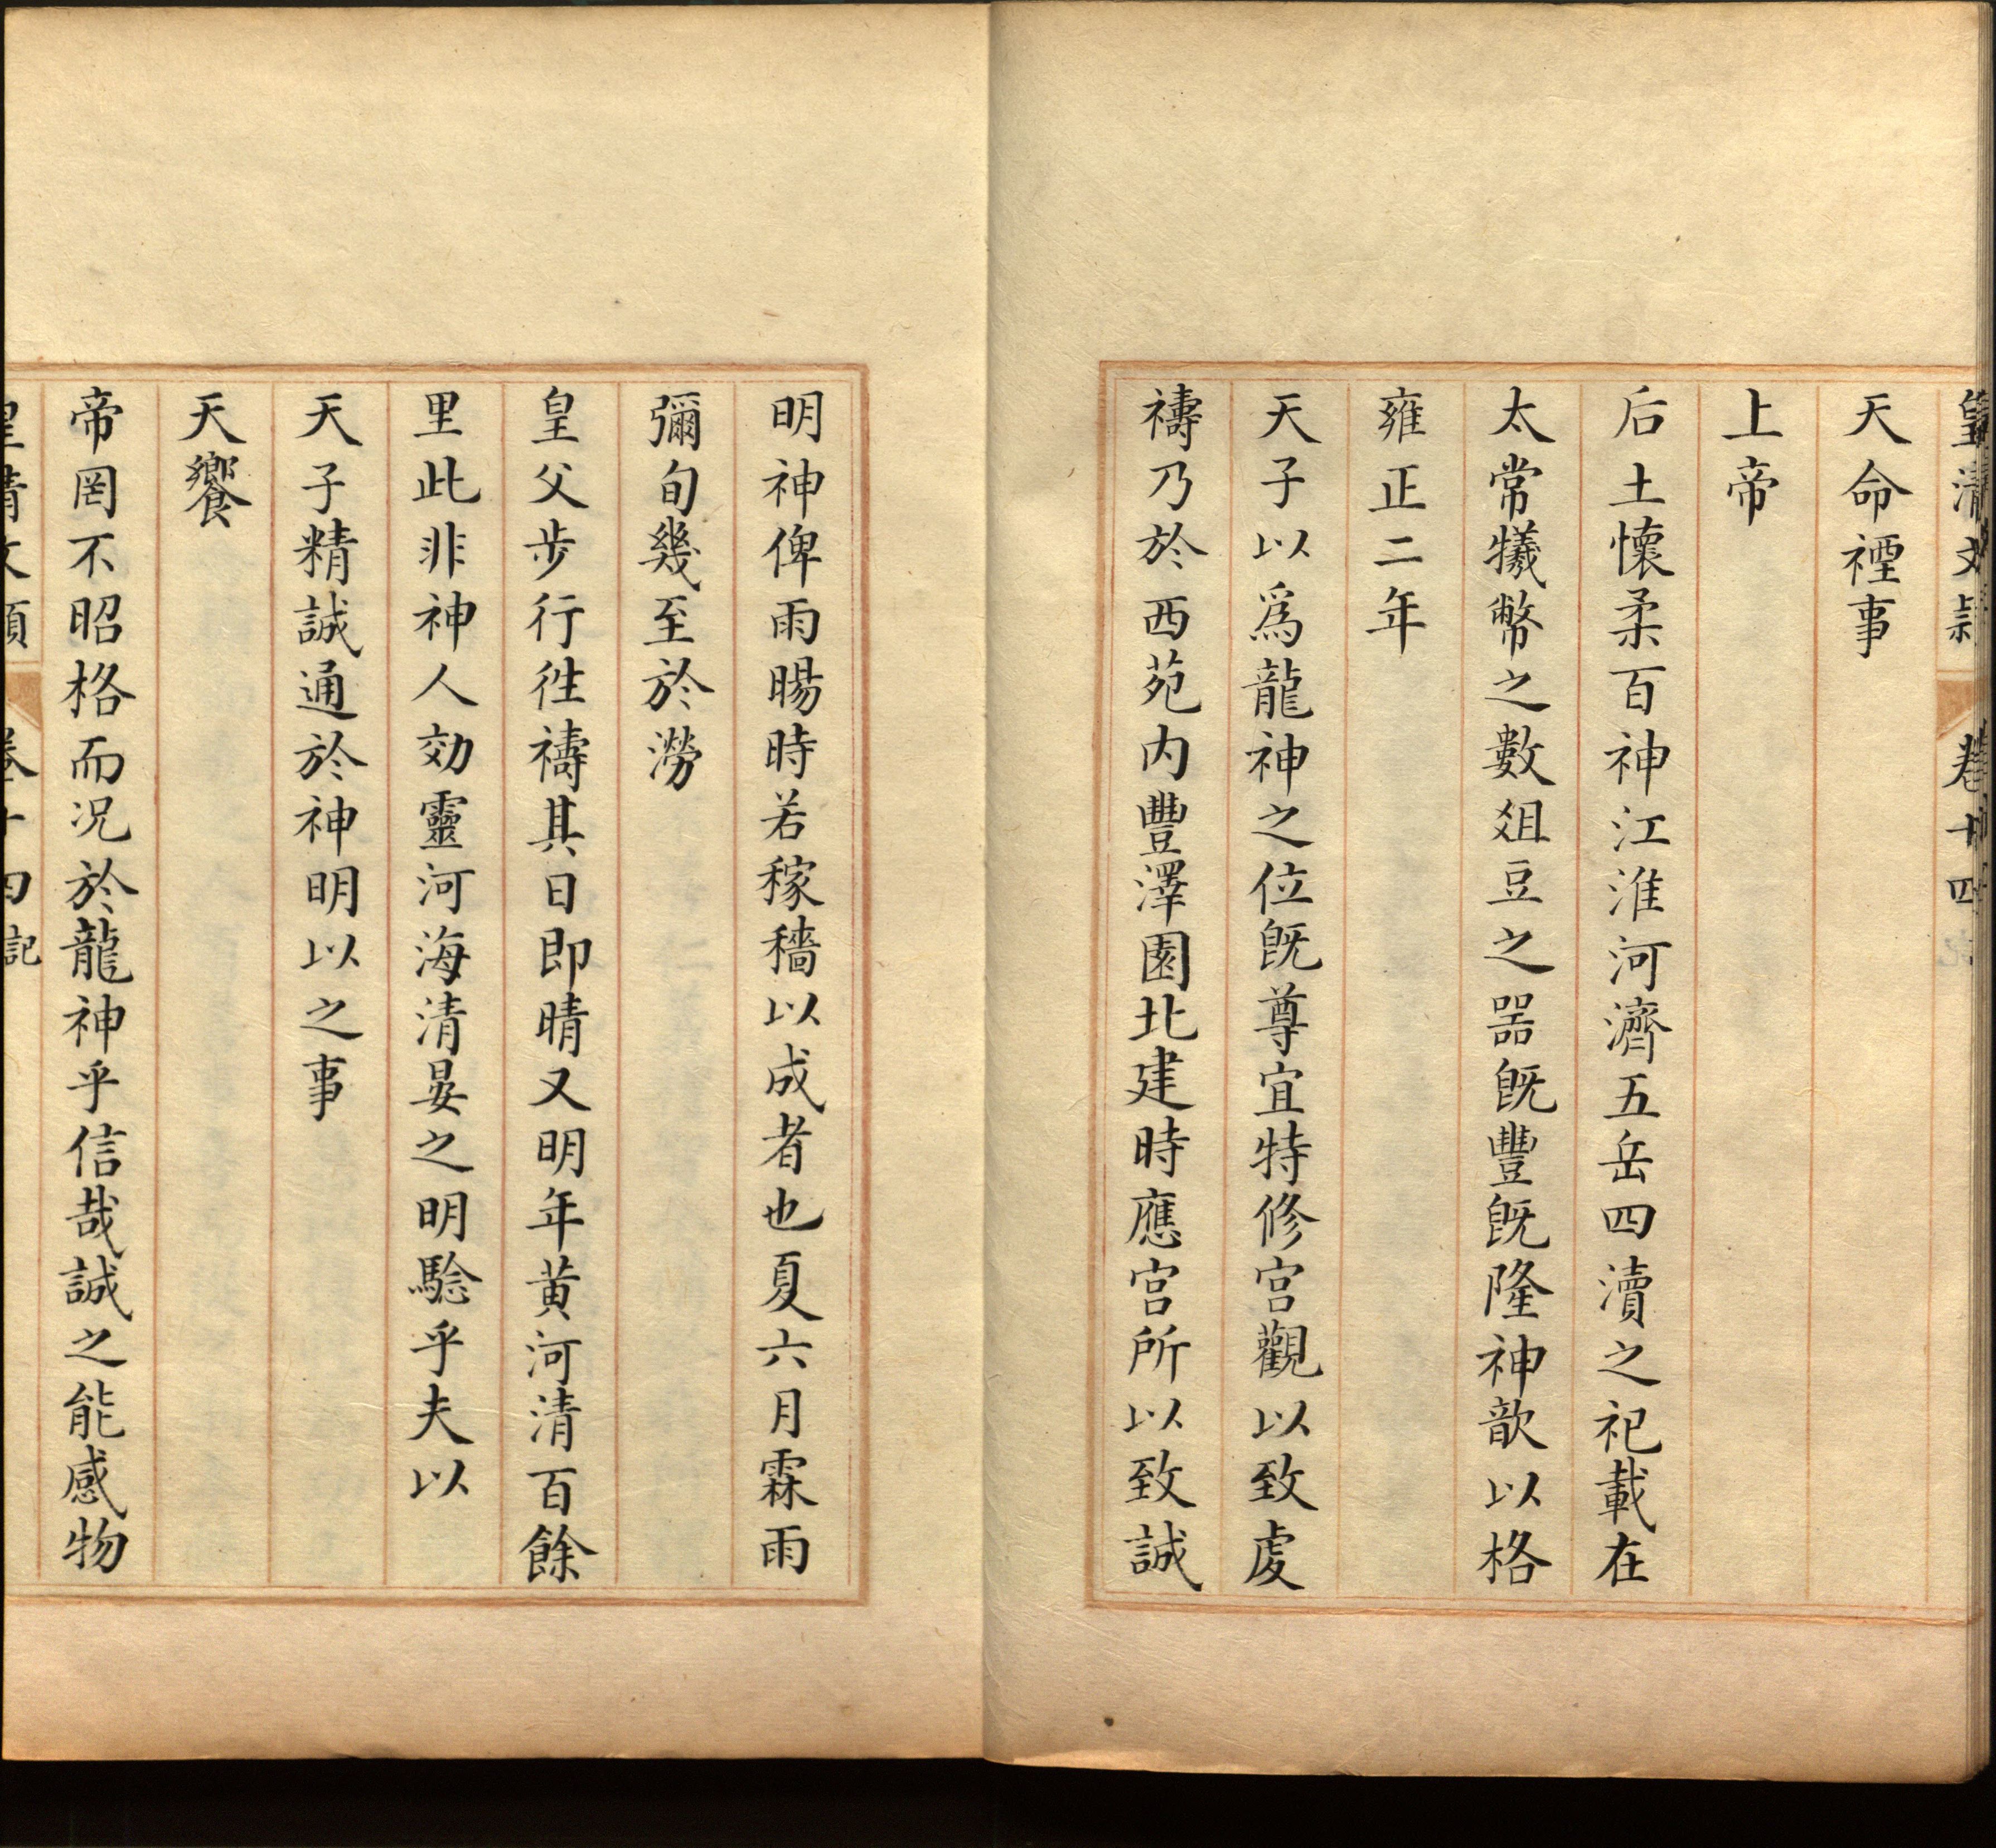 皇清文穎 卷十四
天命禋事
上帝
后土懷柔百神江淮河濟五岳四瀆之祀載在
太常犧幣之數俎豆之器旣豐旣隆神歆以格
雍正二年
天子以爲龍神之位旣尊宜特修宫觀以致虔
禱乃於西苑内豐澤園北建時應宫所以致誠
明神俾雨暘時若稼穡以成者也夏六月霖雨
彌旬幾至於澇
皇父步行徃禱其日即晴又明年黄河清百餘
里此非神人効靈河海清晏之明騐乎夫以
天子精誠通於神明以之事
天饗
帝罔不昭格而况於龍神乎信哉誠之能感物
皇清文穎 卷十四記